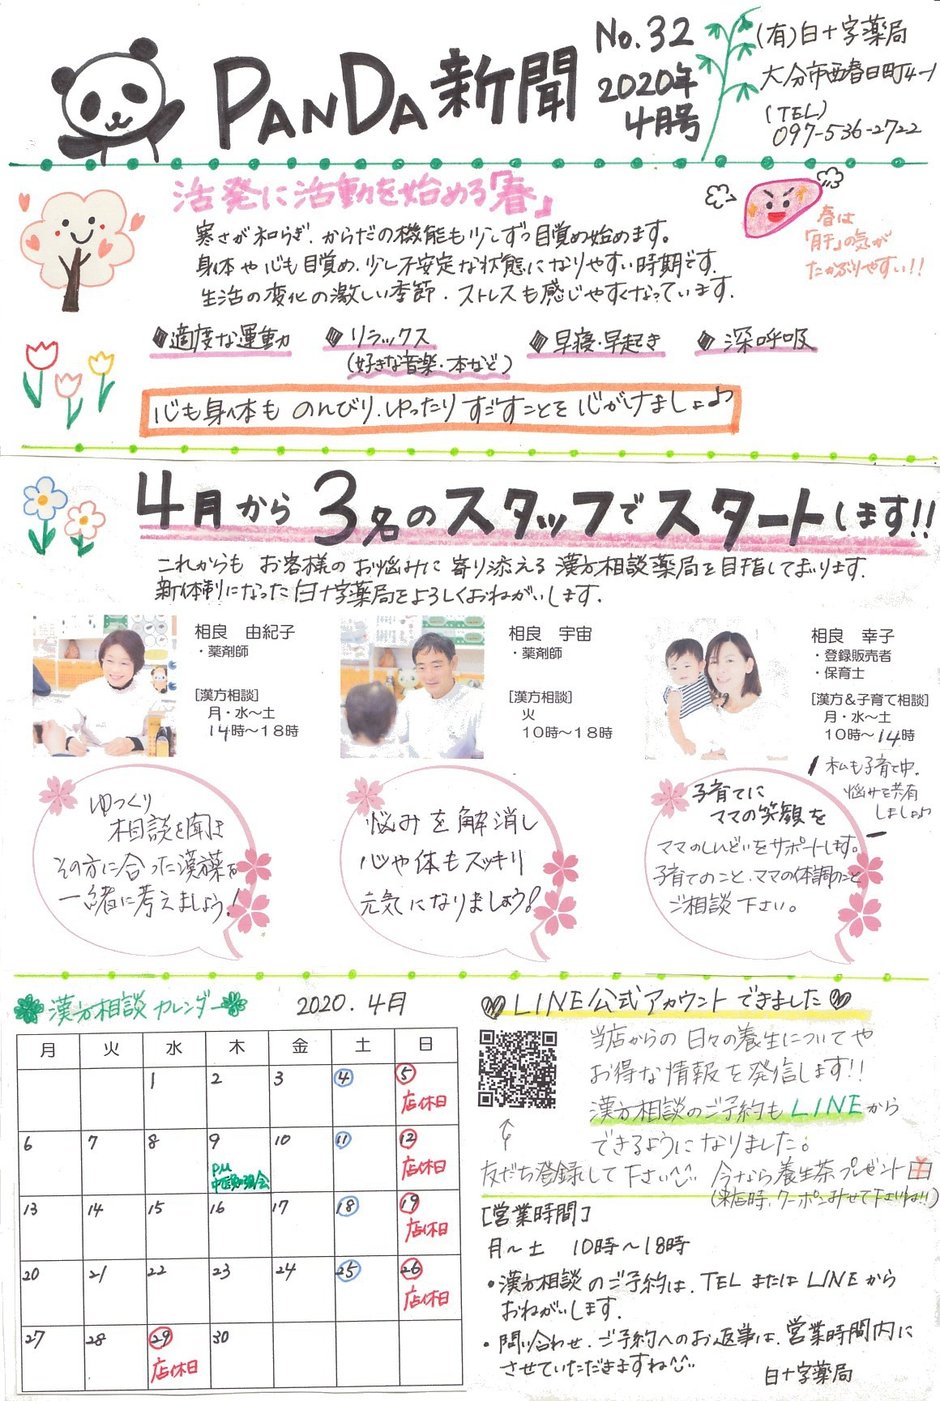 PANDA新聞
No.32
2020年
4月号
(有)白十字薬局
大分市西春日町4-1
(TEL)
097-536-2722
活発に活動を始める「春」
寒さが和らぎ、からだの機能も少しずつ目覚め始めます。
身体や心も目覚め、少し不安定な状態になりやすい時期です。
生活の変化の激しい季節、ストレスも感じやすくなっています。
春は
「肝」の気が
たかぶりやすい!!
◆適度な運動
◆リラックス
(好きな音楽・本など)
◆早寝・早起き
◆深呼吸
心も身体も のんびり、ゆったりすごすことを心がけましょ♪
4月から3名のスタッフでスタートします!!
これからも お客様のお悩みに寄り添える漢方相談薬局を目指してまいります。
新体制になった白十字薬局をよろしくおねがいします。
相良 由紀子
・薬剤師
[漢方相談]
月・水~土
14時~18時
相良 宇宙
・薬剤師
[漢方相談]
火
10時~18時
相良 幸子
・登録販売者
・保育士
[漢方&子育て相談]
月・水~土
10時~14時
私も子育て中。
悩みを共有
しましょ♪
ゆっくり
相談を聞き
その方に合った漢方薬を
一緒に考えましょう!
悩みを解消し
心や体もスッキリ
元気になりましょう!
子育てに
ママの笑顔を
ママのしんどいをサポートします。
子育てのこと、ママの体調のこと
ご相談下さい。
漢方相談カレンダー
2020.4月
月 火 水 木 金 土 日
1 2 3 4 5
店休日
6 7 8 9 10 11 12
PM
店休日
13 14 15 16 17 18 19
店休日
20 21 22 23 24 25 26
店休日
27 28 29 30
店休日
♡LINE公式アカウントできました♡
当店からの日々の養生についてや
お得な情報を発信します!!
漢方相談のご予約もLINEから
できるようになりました。
友だち登録して下さい 今なら養生茶プレゼント
(来店時、クーポンみせて下さいね!!)
[営業時間]
月~土 10時~18時
・漢方相談のご予約は、TELまたはLINEから
おねがいします。
・問い合わせ、ご予約へのお返事は、営業時間内に
させていただきますね
白十字薬局